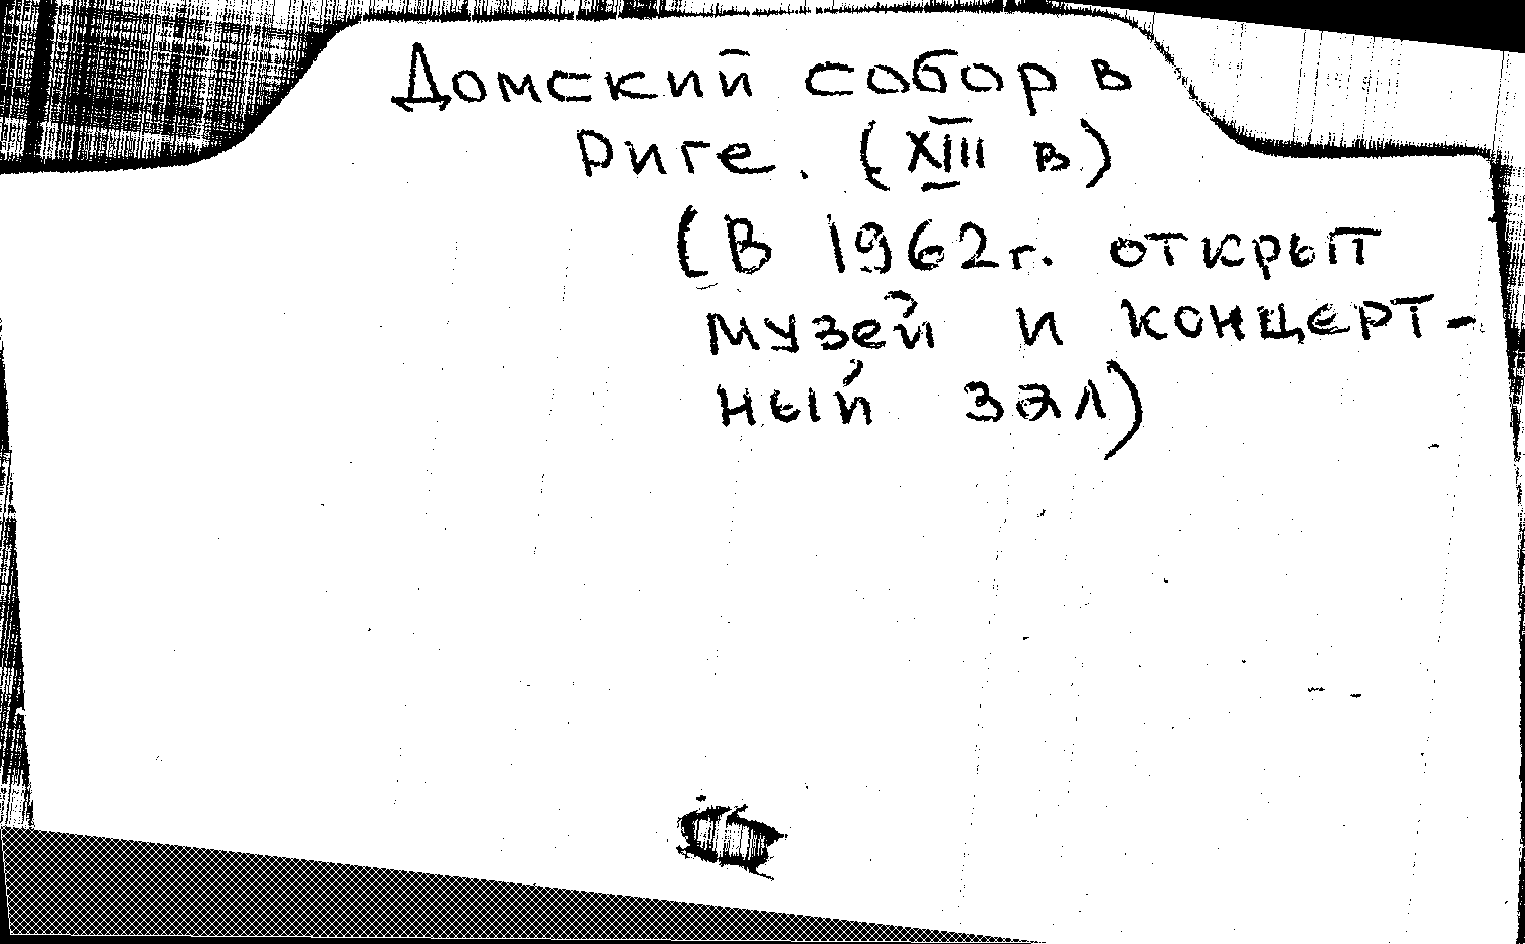 Домский собор в
Риге. (XIII в)
(В 1962г. открыт
музей и концерт-
ный зал)